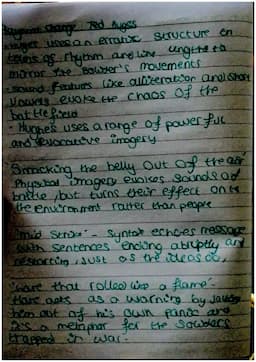 Bayonet Charge Ted Hughes
Hughes uses an erratic structure in
terms of rhythm and line length to
mirror the soldier's movements
Sound features like alliteration and short
vowels evoke the chaos of the
battlefield
Hughes uses a range of powerful
and evocative imagery
'Smacking the belly out of the air'
Physical imagery evokes sounds of
battle, but turns their effect onto
the environment rather than people
'Mid stride' - syntax echoes message
with sentences ending abruptly and
restarting, just as the ideas do,
'hare that rolled like a flame' -
Hare acts as a warning by
him out of his own panic and
it's a metaphor for the soldiers
trapped in war.